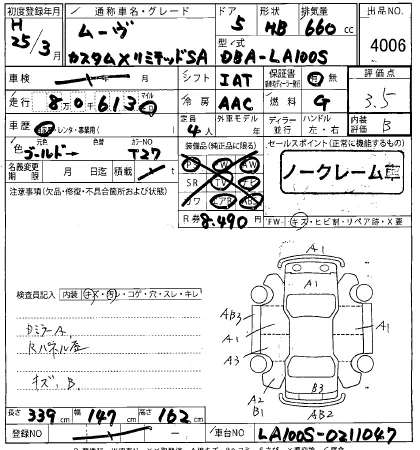 初度登録年月 通称車名・グレード ドア 形状 排気量 出品NO.
H 25年 3月 ムーヴ カスタムXリミテッドSA 5 HB 660cc 4006
型式 DBA-LA100S
車検 年 月 シフト IAT 保証書 有・無 評価点 3.5
走行 80千613 マイル km 冷房 AAC 燃料 G
車歴 自家用・レンタ・事業用( ) 定員 4人 外車モデル 年 ディーラー・並行 ハンドル 左・右 内装評価 B
色 元色 ゴールド→ 色替 カラーNO T27
装備品(純正品に限る) セールスポイント(正常に機能するもの)
名義変更期限 月 日迄 積載 t
PS PW AW SR TV ナビ カワ エアB
ノークレーム車
注意事項(欠品・修復・不具合箇所および状態)
R券 8,490円
FW-キズ・ヒビ割・リペア跡・X要
検査員記入 内装 キズ・汚レ・コゲ・穴・スレ・キレ
Dミラー A.
Rパネル歪
キズ、B.
A1
A1
A1
AB3
A1
A1
A3
A2
B1
B3
AB2
長さ 339cm 幅 147cm 高さ 162cm
登録NO 車台NO LA100S-0211047